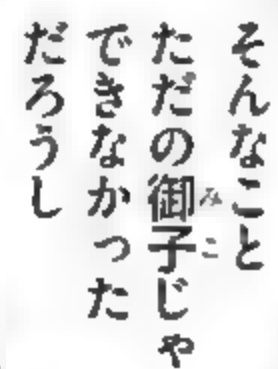 そんなこと
ただの御子じゃ
できなかった
だろうし